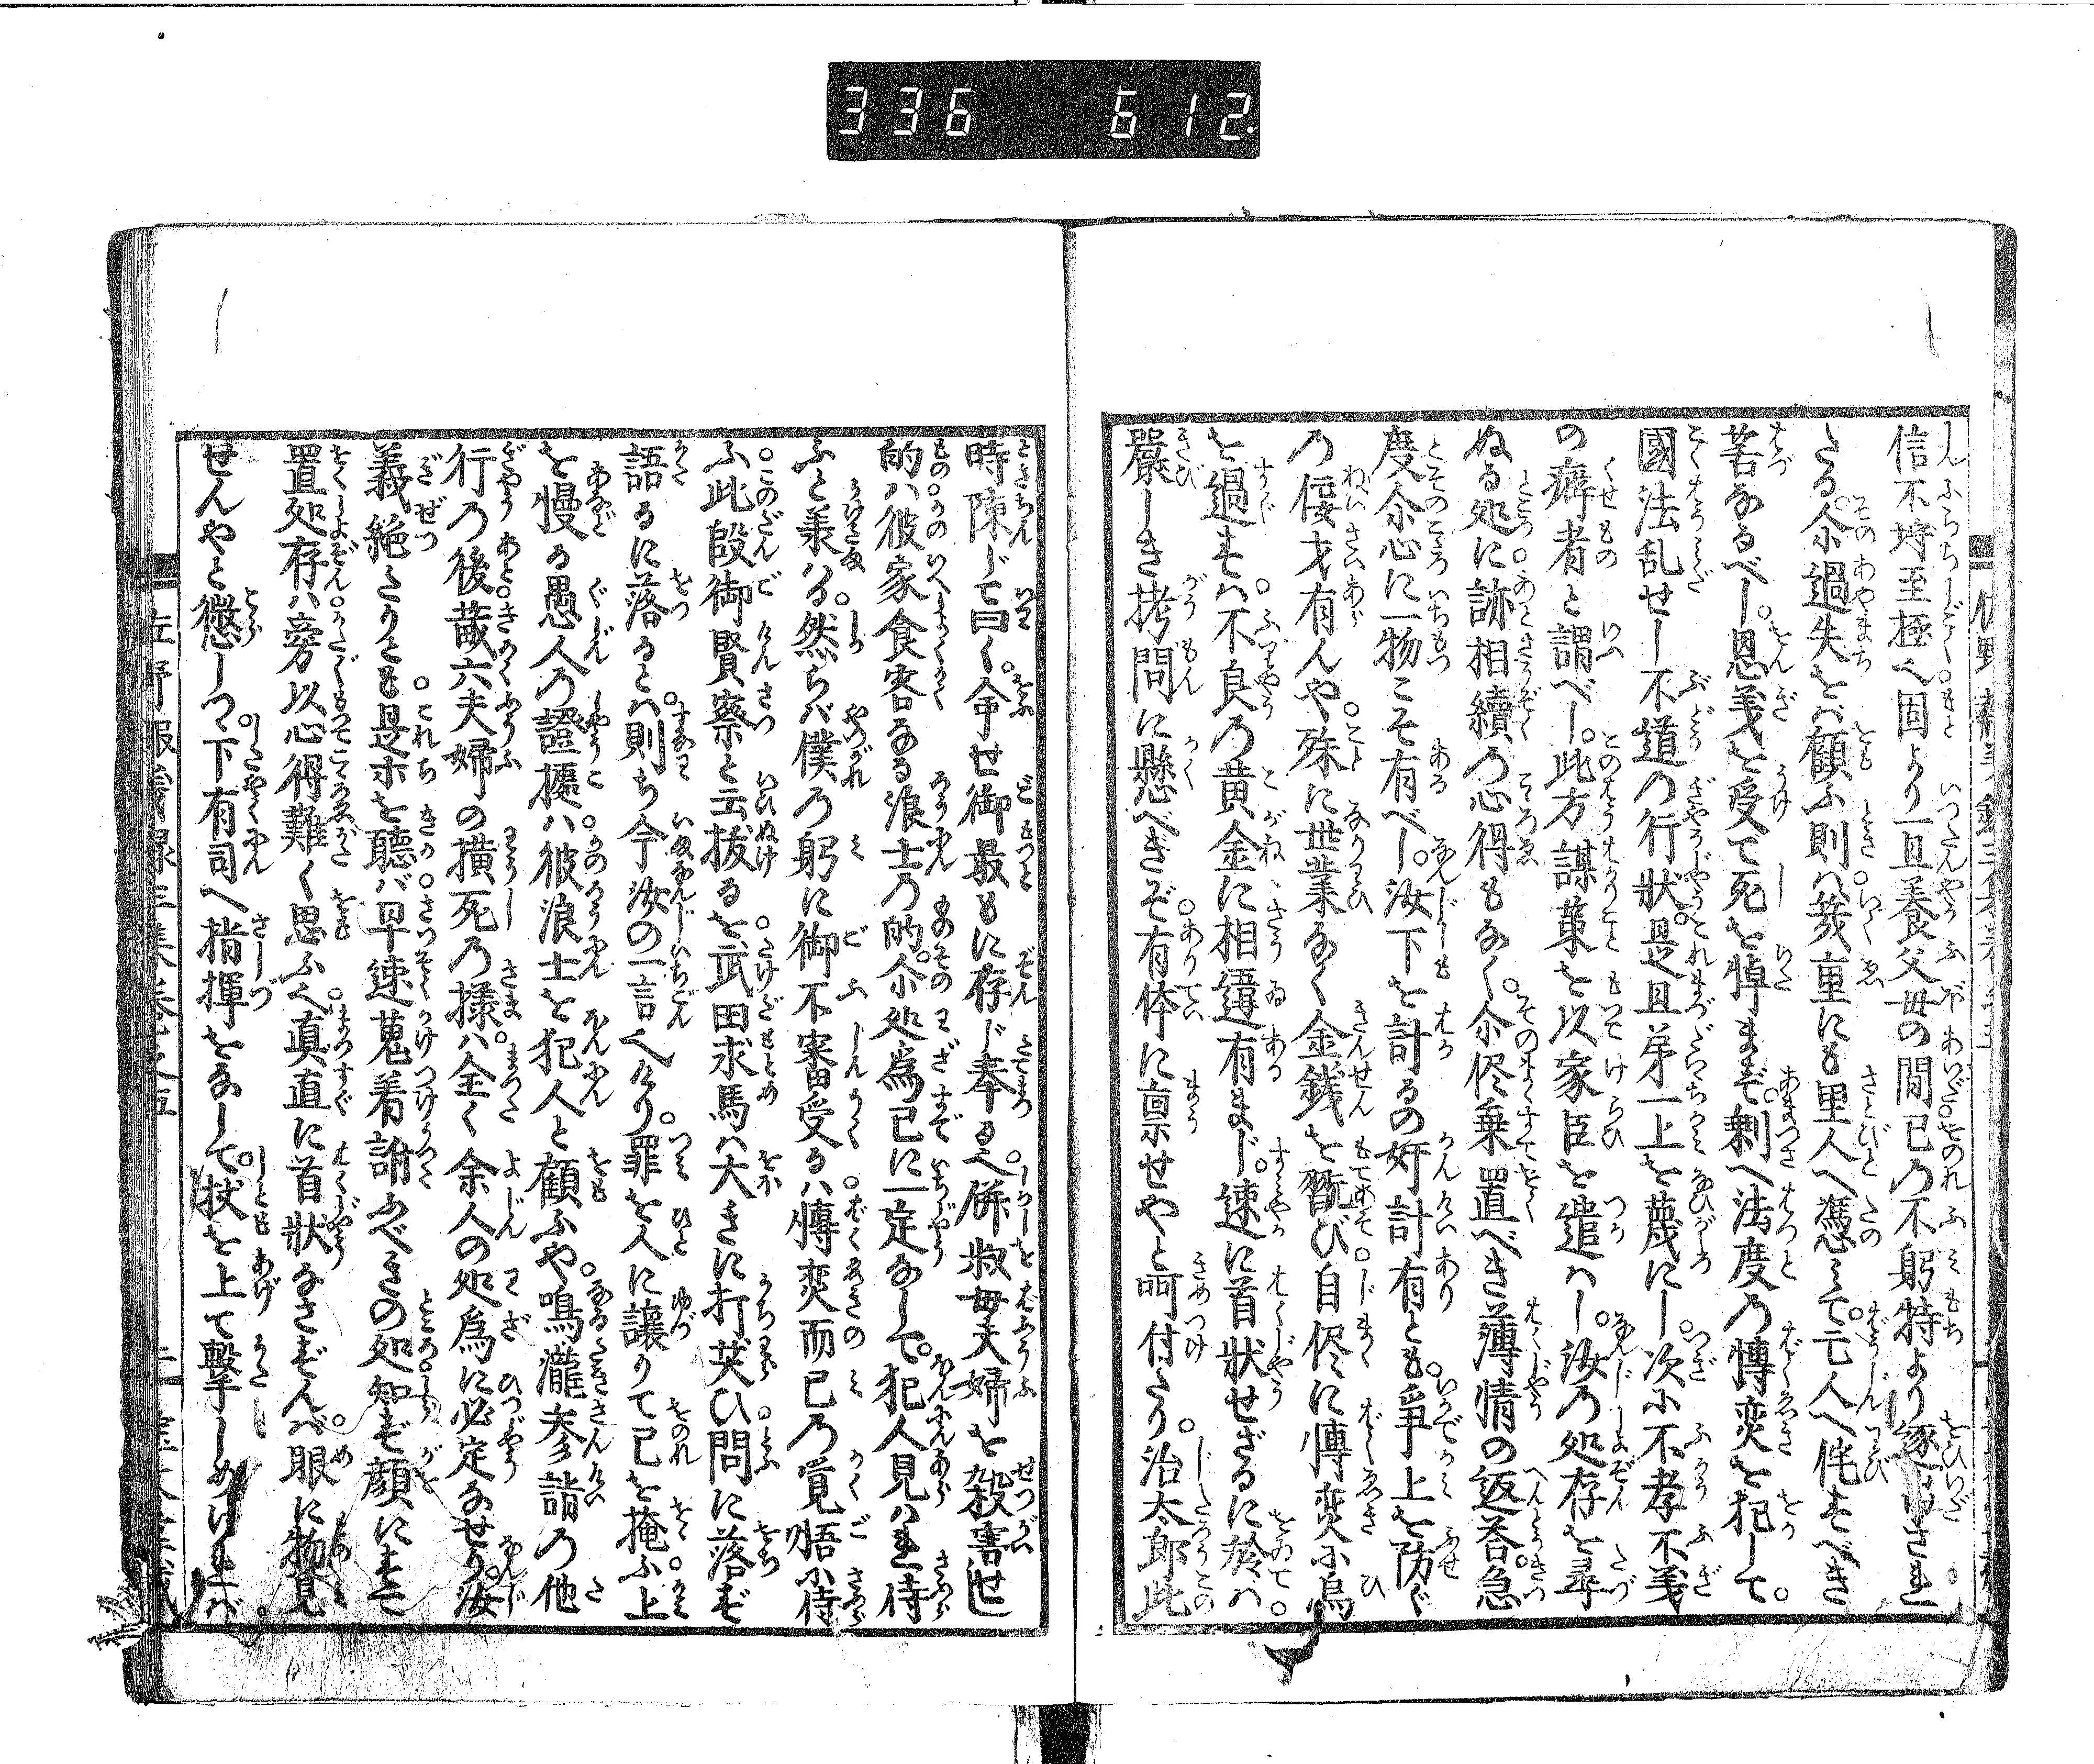 336 612
信不埒至極〱固より一旦養父母の間已の不躬持より逐出され
たる尓過失をバ顧ふ則ハ幾重にも里人へ憑ミて元人へ侘すべき
筈なるべし。恩義を受て死を悼まず剰へ法度の慱奕を犯して。
國法乱せし不道の行状。是且第一上を蔑にし。次に不孝不義
の癖者と謂べし。此方謀菓を以家臣を遣ハし。汝の処存を尋
ぬる処に跡相續の心得もなく。尓侭棄置べき薄情の返荅。急
度尓心に一物こそ有べし。汝下を計るの奸計有とも。爭上を防ぐ
の佞才有んや。殊に世業なく金銭を翫び。自侭に慱奕に烏
を過すハ不良の黄金に相違有まじ。速に首状せざるに於ハ。
嚴しき拷問に懸べきぞ有体に禀せやと呵付たり。治太郎此
時陳じて曰く。命せ御最もに存じ奉る〱。併叔母夫婦を殺害せし
的ハ彼家食客なる浪士の的。尓処為已に一定なして。犯人見ハれ侍
ふと羕ハる。然らバ僕の躬に御不審受るハ慱奕而已の覚悟に侍
ふ此段御賢察と云抜るを武田求馬ハ大きに打笑ひ問に落ず
語るに落るとハ則ち今汝の一言〱けり。罪を人に譲りて已を掩ふ上
を慢る愚人の證據ハ。彼浪士を犯人と顧ふや。鳴瀧参詣の他
行の後蔵六夫婦の横死の様ハ全く余人の処為に必定なせり。汝
義絶たりとも是ホを聴バ早速蒐着訃ふべきの処知ず顔にすて
置処存ハ旁以心得難く思ふ〱真直に首状なさずんバ眼に物見
せんやと懲しつゝ下有司へ指揮をなして。杖を上て撃しめけれバ。